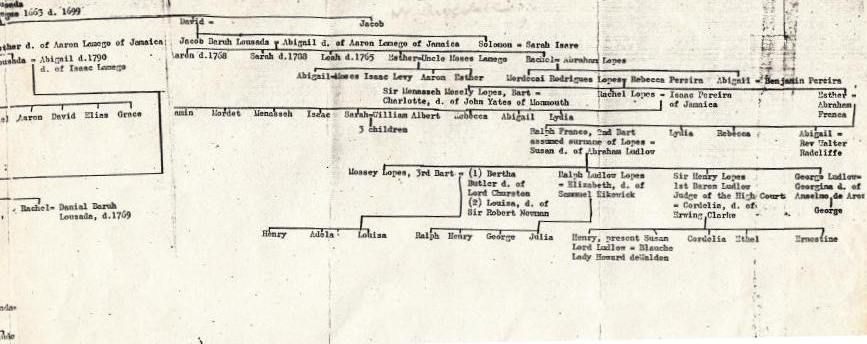 1663 d. 1699
David =
Jacob
d. of Aaron Lamego of Jamaica
Jacob Baruh Lousada = Abigail d. of Aaron Lamego of Jamaica
Solomon = Sarah Isare
= Abigail d.1790
d. of Isaac Lamego
d.1768
Sarah d.1708
Leah d.1765
Esther=Uncle Moses Lamego
Rachel= Abraham Lopes
Abigail=Moses Isaac Levy
Aaron
Esther
Mordecai Rodrigues Lopes= Rebecca Pereira
Abigail = Benjamin Pereira
Sir Menasseh Mosely Lopes, Bart =
Charlotte, d. of John Yates of Monmouth
Rachel Lopes = Isaac Pereira
of Jamaica
Esther =
Abraham
Franca
Aaron
David
Elias
Grace
Mordet
Menasseh
Isaac
Sarah=William Albert
3 children
Rebecca
Abigail
Lydia
Ralph Franco, 2nd Bart
assumed surname of Lopes =
Susan d. of Abraham Ludlow
Lydia
Rebecca
Abigail =
Rev Walter
Radcliffe
Massey Lopes, 3rd Bart =
(1) Bertha
Butler d. of
Lord Churston
(2) Louisa, d. of
Sir Robert Newman
Ralph Ludlow Lopes
= Elizabeth, d. of
Samuel Kikewick
Sir Henry Lopes
1st Baron Ludlow
Judge of the High Court
= Cordelia, d. of
Erving Clarke
George Ludlow=
Georgina d. of
Anselmo de Aroz
George
Rachel= Danial Baruh
Lousada, d.1769
Henry
Adela
Louisa
Ralph
Henry
George
Julia
Henry, present
Lord Ludlow = Blauche
Lady Howard deWalden
Susan
Cordelia
Ethel
Ernestine